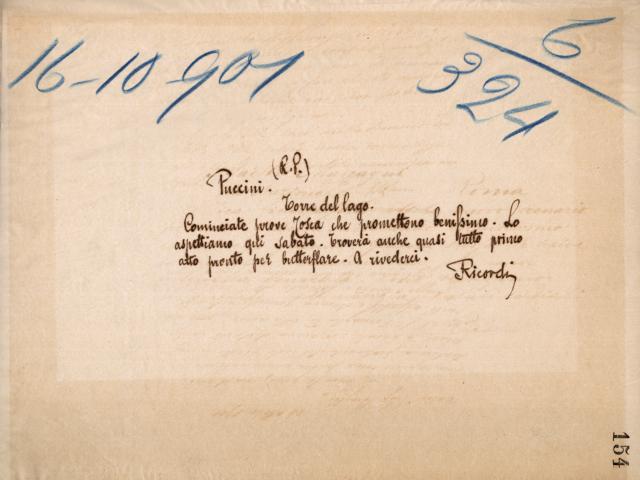 16-10-901
6
324
(R.P.)
Puccini.
Torre del lago.
Cominciate prove Tosca che promettono benissimo. Lo
aspettiamo qui sabato. Troverà anche quasi tutto primo
atto pronto per butterflare. A rivederci.
Ricordi
154